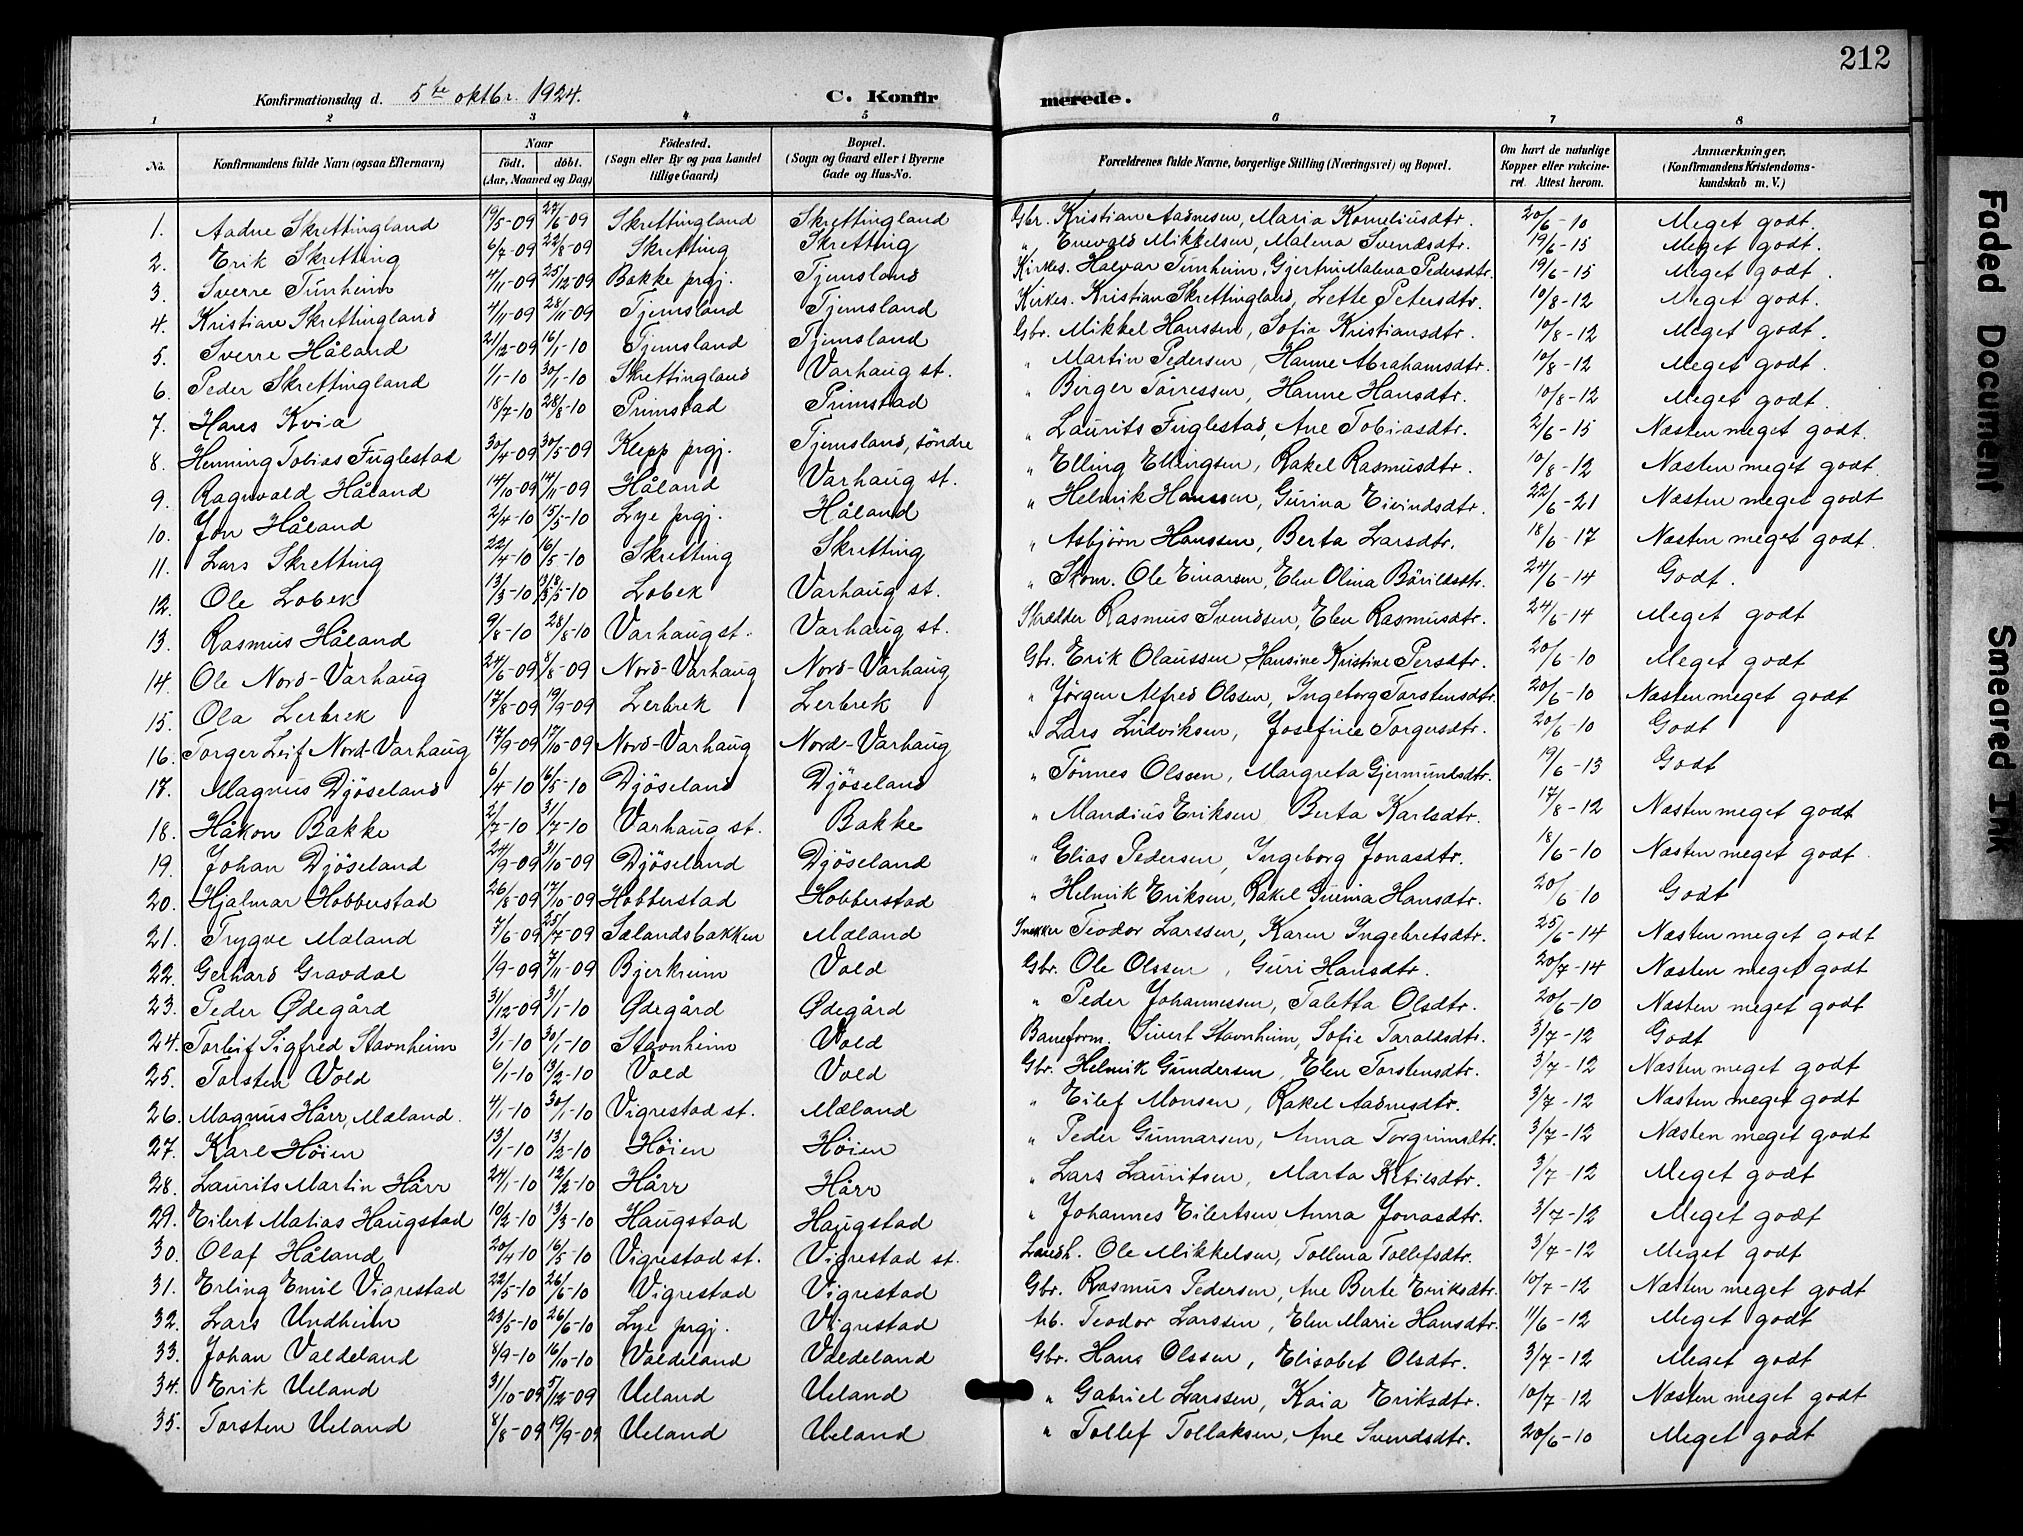 212
Konfirmationsdag d. 5te oktbr. 1924. C. Konfirmerede.
1 2 3 4 5 6 7 8
No. Konfirmandens fulde Navn (ogsaa Efternavn) Naar födt. döbt. (Aar, Maaned og Dag) Födested. (Sogn eller By og paa Landet tillige Gaard) Bopæl. (Sogn og Gaard eller i Byerne Gade og Hus-No. Forældrenes fulde Navne, borgerlige Stilling (Næringsvei) og Bopæl. Om havt de naturlige Kopper eller vaccineret. Attest herom. Anmærkninger, (Konfirmandens Kristendomskundskab m. V.)
1. Aadne Skrettingland 19/5-09 27/6-09 Skrettingland Skrettingland Gbr. Kristian Aadnesen, Maria Korneliusdtr. 20/6-10 Meget godt.
2. Erik Skretting 6/7-09 22/8-09 Skretting Skretting " Enevald Mikkelsen, Malena Svendsdtr. 19/6-15 Meget godt.
3. Sverre Tunheim 4/11-09 25/12-09 Bakke prgj. Tjemsland Kirkes. Halvar Tunheim, Gjertru Malena Pedersdtr. 19/6-15 Meget godt.
4. Kristian Skrettingland 4/11-09 28/11-09 Tjemsland Tjemsland Kirkes. Kristian Skrettingland, Lette Petersdtr. 10/8-12 Meget godt.
5. Sverre Håland 21/12-09 16/1-10 Tjemsland Tjemsland Gbr. Mikkel Hanssen, Sofia Kristiansdtr. 10/8-12 Meget godt.
6. Peder Skrettingland 1/1-10 30/1-10 Skrettingland Varhaug st. " Martin Pedersen, Hanne Abrahamsdtr. 10/8-12 Meget godt.
7. Hans Kvia 18/7-10 28/8-10 Primstad Primstad " Berger Tøressen, Hanne Hansdtr. 10/8-12 Meget godt.
8. Henning Tobias Fuglestad 30/4-09 30/5-09 Klepp prgj. Tjemsland, söndre " Laurits Fuglestad, Ane Tobiasdtr. 2/6-15 Næsten meget godt.
9. Ragnvald Håland 14/10-09 14/11-09 Håland Varhaug st. " Elling Ellingsen, Rakel Rasmusdtr. 10/8-12 Næsten meget godt.
10. Jon Håland 2/4-10 15/5-10 Lye prgj. Håland " Helmik Hanssen, Gurina Eivindsdtr. 22/6-21 Næsten meget godt
11. Lars Skretting 22/4-10 16/5-10 Skretting Skretting " Asbjørn Hanssen, Berta Larsdtr. 18/6-17 Næsten meget godt.
12. Ole Lobek 13/3-10 /5-10 Lobek Varhaug st. " Skom. Ole Einarsen, Elen Olina Bårildsdtr. 24/6-14 Godt.
13. Rasmus Håland 9/8-10 28/8-10 Varhaug st. Varhaug st. Skrædder Rasmus Svendsen, Elen Rasmusdtr. 24/6-14 Meget godt
14. Ole Nord-Varhaug 24/6-09 8/8-09 Nord-Varhaug Nord-Varhaug Gbr. Erik Olaussen, Hansine Kristine Persdtr. 20/6-10 Meget godt
15. Ola Lerbrek 17/8-09 19/9-09 Lerbrek Lerbrek " Jørgen Alfred Olssen, Ingeborg Torstensdtr. 20/6-10 Næsten meget godt
16. Torger Leif Nord-Varhaug 17/9-09 17/10-09 Nord-Varhaug Nord-Varhaug " Lars Ludviksen, Josefine Torgersdtr. 20/6-10 Godt
17. Magnus Djöseland 6/4-10 16/5-10 Djöseland Djöseland " Tönnes Olssen, Margreta Gjermundsdtr. 19/6-13 Godt
18. Håkon Bakke 2/7-10 31/7-10 Varhaug st. Bakke " Mandius Eriksen Berta Karlsdtr. 17/8-12 Næsten meget godt
19. Johan Djöseland 24/9-09 31/10-09 Djöseland Djöseland " Elias Pedersen, Ingeborg Jonasdtr. 18/6-10 Næsten meget godt.
20. Hjalmar Hobberstad 26/8-09 17/10-09 Hobberstad Hobberstad " Helmik Eriksen, Rakel Gurina Hansdtr. 20/6 10 Godt
21. Trygve Mæland 7/6-09 25/7-09 Sælandsbakken Mæland Snekker Teodor Larssen, Karen Ingebretsdtr. 25/6-14 Næsten meget godt
22. Gerhard Gravdal 1/9-09 7/11-09 Bjerkreim Vold Gbr. Ole Olssen, Guri Hansdtr. 20/7-14 Næsten meget godt
23. Peder Ødegård 31/12-09 31/1-10 Ødegård Ødegård " Peder Johannessen, Taletta Olsdtr. 20/6-10 Næsten meget godt
24. Torleif Sigfred Stavnheim 3/1-10 30/1-10 Stavnheim Vold Baneform. Sivert Stavnheim, Sofie Taraldsdtr. 3/7-12 Godt
25. Torsten Vold 6/1-10 13/2-10 Vold Vold Gbr. Helmik Gundersen, Elen Torstensdtr. 3/7-12 Næsten meget godt
26. Magnus Hårr, Mæland. 4/1-10 30/1-10 Vigrestad st. Mæland " Eilef Monsen, Rakel Aadnesdtr. 3/7-12 Næsten meget godt
27. Karl Höien 13/1-10 13/2-10 Höien Höien " Peder Gunnarsen, Anna Torgrimsdtr. 3/7-12 Næsten meget godt
28. Laurits Martin Hårr 24/1-10 12/2-10 Hårr Hårr " Lars Lauritsen, Marta Ketilsdtr. 3/7-12 Meget godt
29. Eilert Matias Haugstad 10/2-10 13/3-10 Haugstad Haugstad " Johannes Eilertsen Anna Jonasdtr. 3/7-12 Meget godt
30. Olaf Håland 20/4-10 16/5-10 Vigrestad st. Vigrestad st. Landh. Ole Mikkelsen, Tollena Tollefsdtr. 3/7-12 Meget godt
31. Erling Emil Vigrestad 22/5-10 26/6-10 Vigrestad Vigrestad Gbr. Rasmus Pedersen, Ane Berte Eriksdtr. 10/7-12 Næsten meget godt
32. Lars Undheim 23/5-10 26/6-10 Lye prgj. Vigrestad Teodor Larssen, Elen Marie Hansdtr. 11/6-12 Meget godt
33. Johan Valdeland 8/9-10 16/10-10 Valdeland Valdeland Gbr. Hans Olssen, Elisabet Olsdtr. 3/7-12 Meget godt
34. Erik Ueland 31/10-09 5/12-09 Ueland Ueland " Gabriel Larssen, Kaia Eriksdtr. 10/7-12 Næsten meget godt
35. Torsten Ueland 8/8-09 19/9-09 Ueland Ueland " Tollef Tollaksen, Ane Svendsdtr. 20/6-10 Meget godt
Faded Document
Smeared Ink